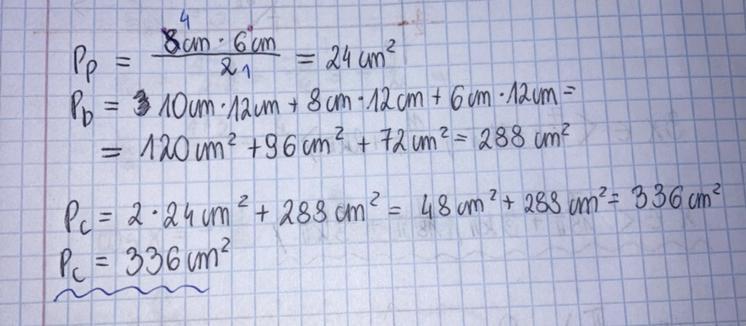 Pp = 8cm · 6cm / 2 = 24 cm²
4
1
Pb = 10cm · 12cm + 8cm · 12cm + 6cm · 12cm =
= 120cm² + 96cm² + 72cm² = 288 cm²
Pc = 2 · 24cm² + 288cm² = 48cm² + 288cm² = 336cm²
Pc = 336cm²